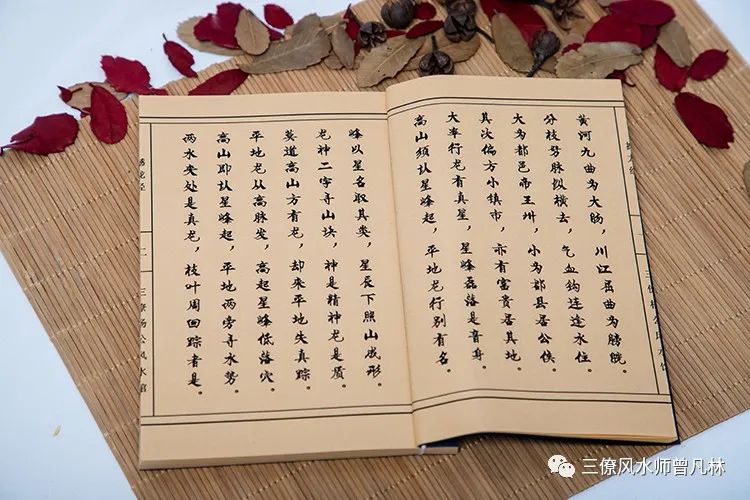 黄河九曲为大肠，川江屈曲为膀胱。
分枝劈脉纵横去，气血钩连逢水住。
大为都邑帝王州，小为郡县居公侯。
其次偏方小镇市，亦有富贵居其地。
大率行龙有真星，星峰磊落是身。
高山须认星峰起，平地龙行别有名。
峰以星名取其类，星辰下照山成形。
龙神二字寻山脉，神是精神龙是质。
莫道高山方有龙，却来平地失真踪。
平地龙从高脉发，高起星峰低落穴。
高山即认星峰起，平地两旁寻水势。
两水夹处是真龙，枝叶周回踪者是。
撼龙经
二
三僚杨公风水馆
三僚风水师曾凡林